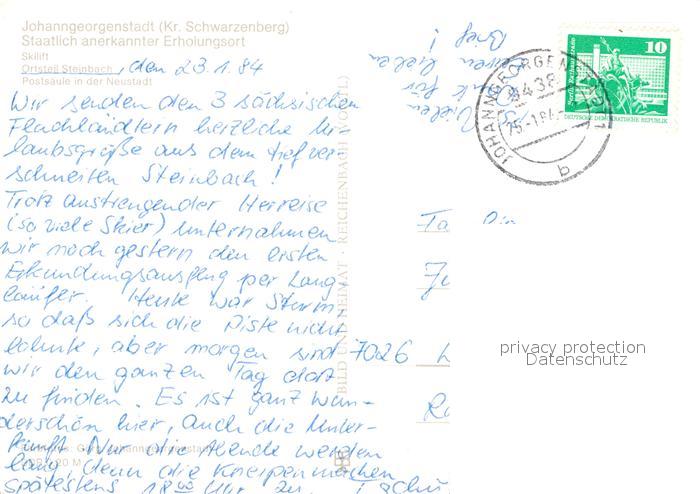 Johanngeorgenstadt (Kr. Schwarzenberg)
Staatlich anerkannter Erholungsort
Skilift
Ortsteil Steinbach, den 23.1.84
Postsäule in der Neustadt
Wir senden den 3 sächsischen
Flachländlern herzliche Ur-
laubsgrüße aus dem tiefver-
schneiten Steinbach!
Trotz anstrengender Herreise
(so viele Skier) unternahmen
wir noch gestern den ersten
Erkundungsausflug per Lang
läufer. Heute war Sturm
so daß sich die Piste nicht
lohnte, aber morgen sind
wir den ganzen Tag dort
zu finden. Es ist ganz wun-
derschön hier, auch die Unter-
kunft. Nur die Abende werden
lang, denn die Kneipen machen
spätestens 18 00 Uhr zu. Tschü
Vielen
Dank für
Euren lieben
Brief!
BILD UND HEIMAT · REICHENBACH (VOGTL)
JOHANNGEORGENSTADT 1
9438
25.-1.84
b
10
DEUTSCHE DEMOKRATISCHE REPUBLIK
7026
privacy protection
Datenschutz